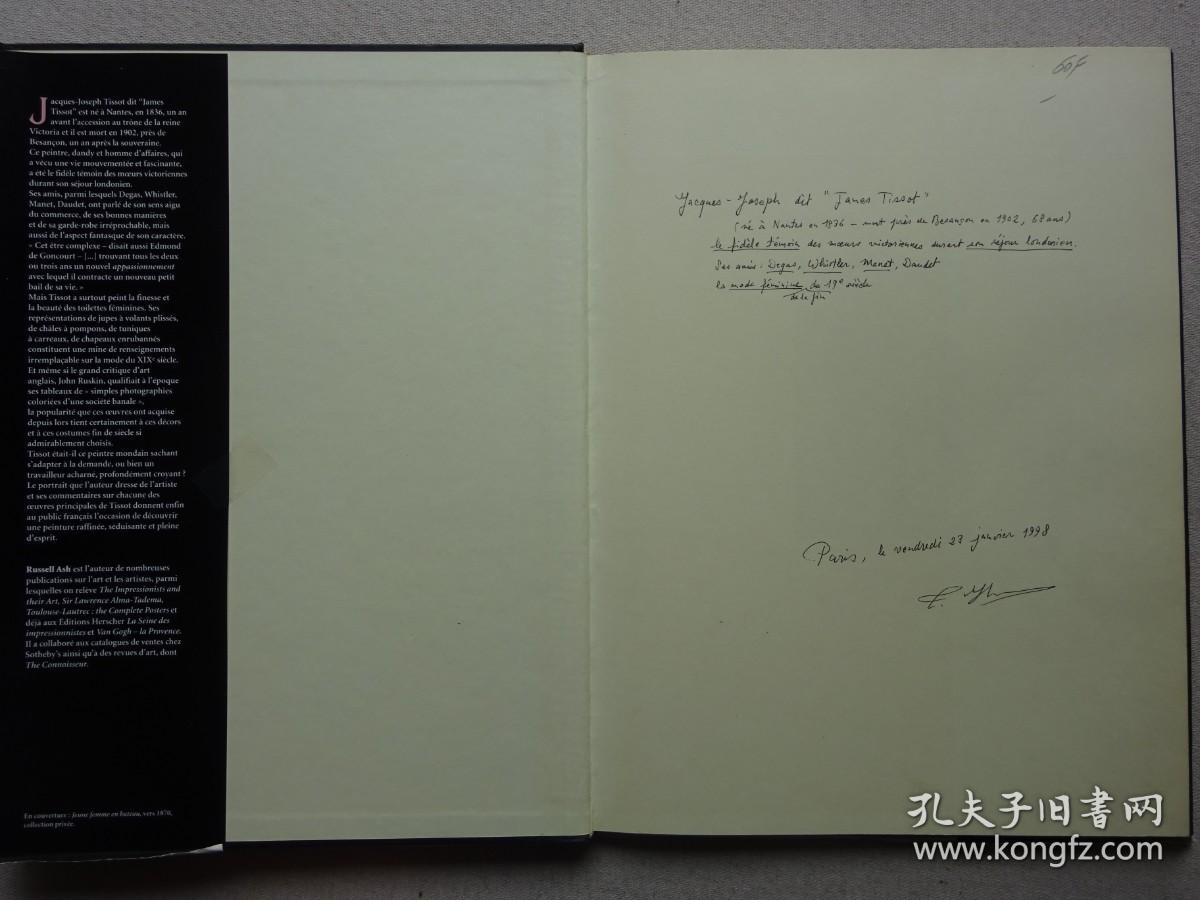 Jacques-Joseph Tissot dit "James
Tissot" est né à Nantes, en 1836, un an
avant l'accession au trône de la reine
Victoria et il est mort en 1902, près de
Besançon, un an après la souveraine.
Ce peintre, dandy et homme d'affaires, qui
a vécu une vie mouvementée et fascinante,
a été le fidèle témoin des mœurs victoriennes
durant son séjour londonien.
Ses amis, parmi lesquels Degas, Whistler,
Manet, Daudet, ont parlé de son sens aigu
du commerce, de ses bonnes manières
et de sa garde-robe irréprochable, mais
aussi de l'aspect fantasque de son caractère.
« Cet être complexe – disait aussi Edmond
de Goncourt – [...] trouvant tous les deux
ou trois ans un nouvel appassionnement
avec lequel il contracte un nouveau petit
bail de sa vie. »
Mais Tissot a surtout peint la finesse et
la beauté des toilettes féminines. Ses
représentations de jupes à volants plissés,
de châles à pompons, de tuniques
à carreaux, de chapeaux enrubannés
constituent une mine de renseignements
irremplaçable sur la mode du XIXe siècle.
Et même si le grand critique d'art
anglais, John Ruskin, qualifiait à l'époque
ses tableaux de « simples photographies
coloriées d'une société banale »,
la popularité que ces œuvres ont acquise
depuis lors tient certainement à ces décors
et à ces costumes fin de siècle si
admirablement choisis.
Tissot était-il ce peintre mondain sachant
s'adapter à la demande, ou bien un
travailleur acharné, profondément croyant ?
Le portrait que l'auteur dresse de l'artiste
et ses commentaires sur chacune des
œuvres principales de Tissot donnent enfin
au public français l'occasion de découvrir
une peinture raffinée, séduisante et pleine
d'esprit.
Russell Ash est l'auteur de nombreuses
publications sur l'art et les artistes, parmi
lesquelles on relève The Impressionists and
their Art, Sir Lawrence Alma-Tadema,
Toulouse-Lautrec : the Complete Posters et
déjà aux Editions Herscher La Seine des
impressionnistes et Van Gogh – la Provence.
Il a collaboré aux catalogues de ventes chez
Sotheby's ainsi qu'à des revues d'art, dont
The Connoisseur.
En couverture : Jeune femme en bateau, vers 1870,
collection privée.
Jacques-Joseph dit "James Tissot"
(né à Nantes en 1836 – mort près de Besançon en 1902, 68 ans)
le fidèle témoin des mœurs victoriennes durant son séjour londonien.
Ses amis : Degas, Whistler, Manet, Daudet
la mode féminine du 19e siècle
de la fin
Paris, le vendredi 23 janvier 1998
孔夫子旧书网
www.kongfz.com